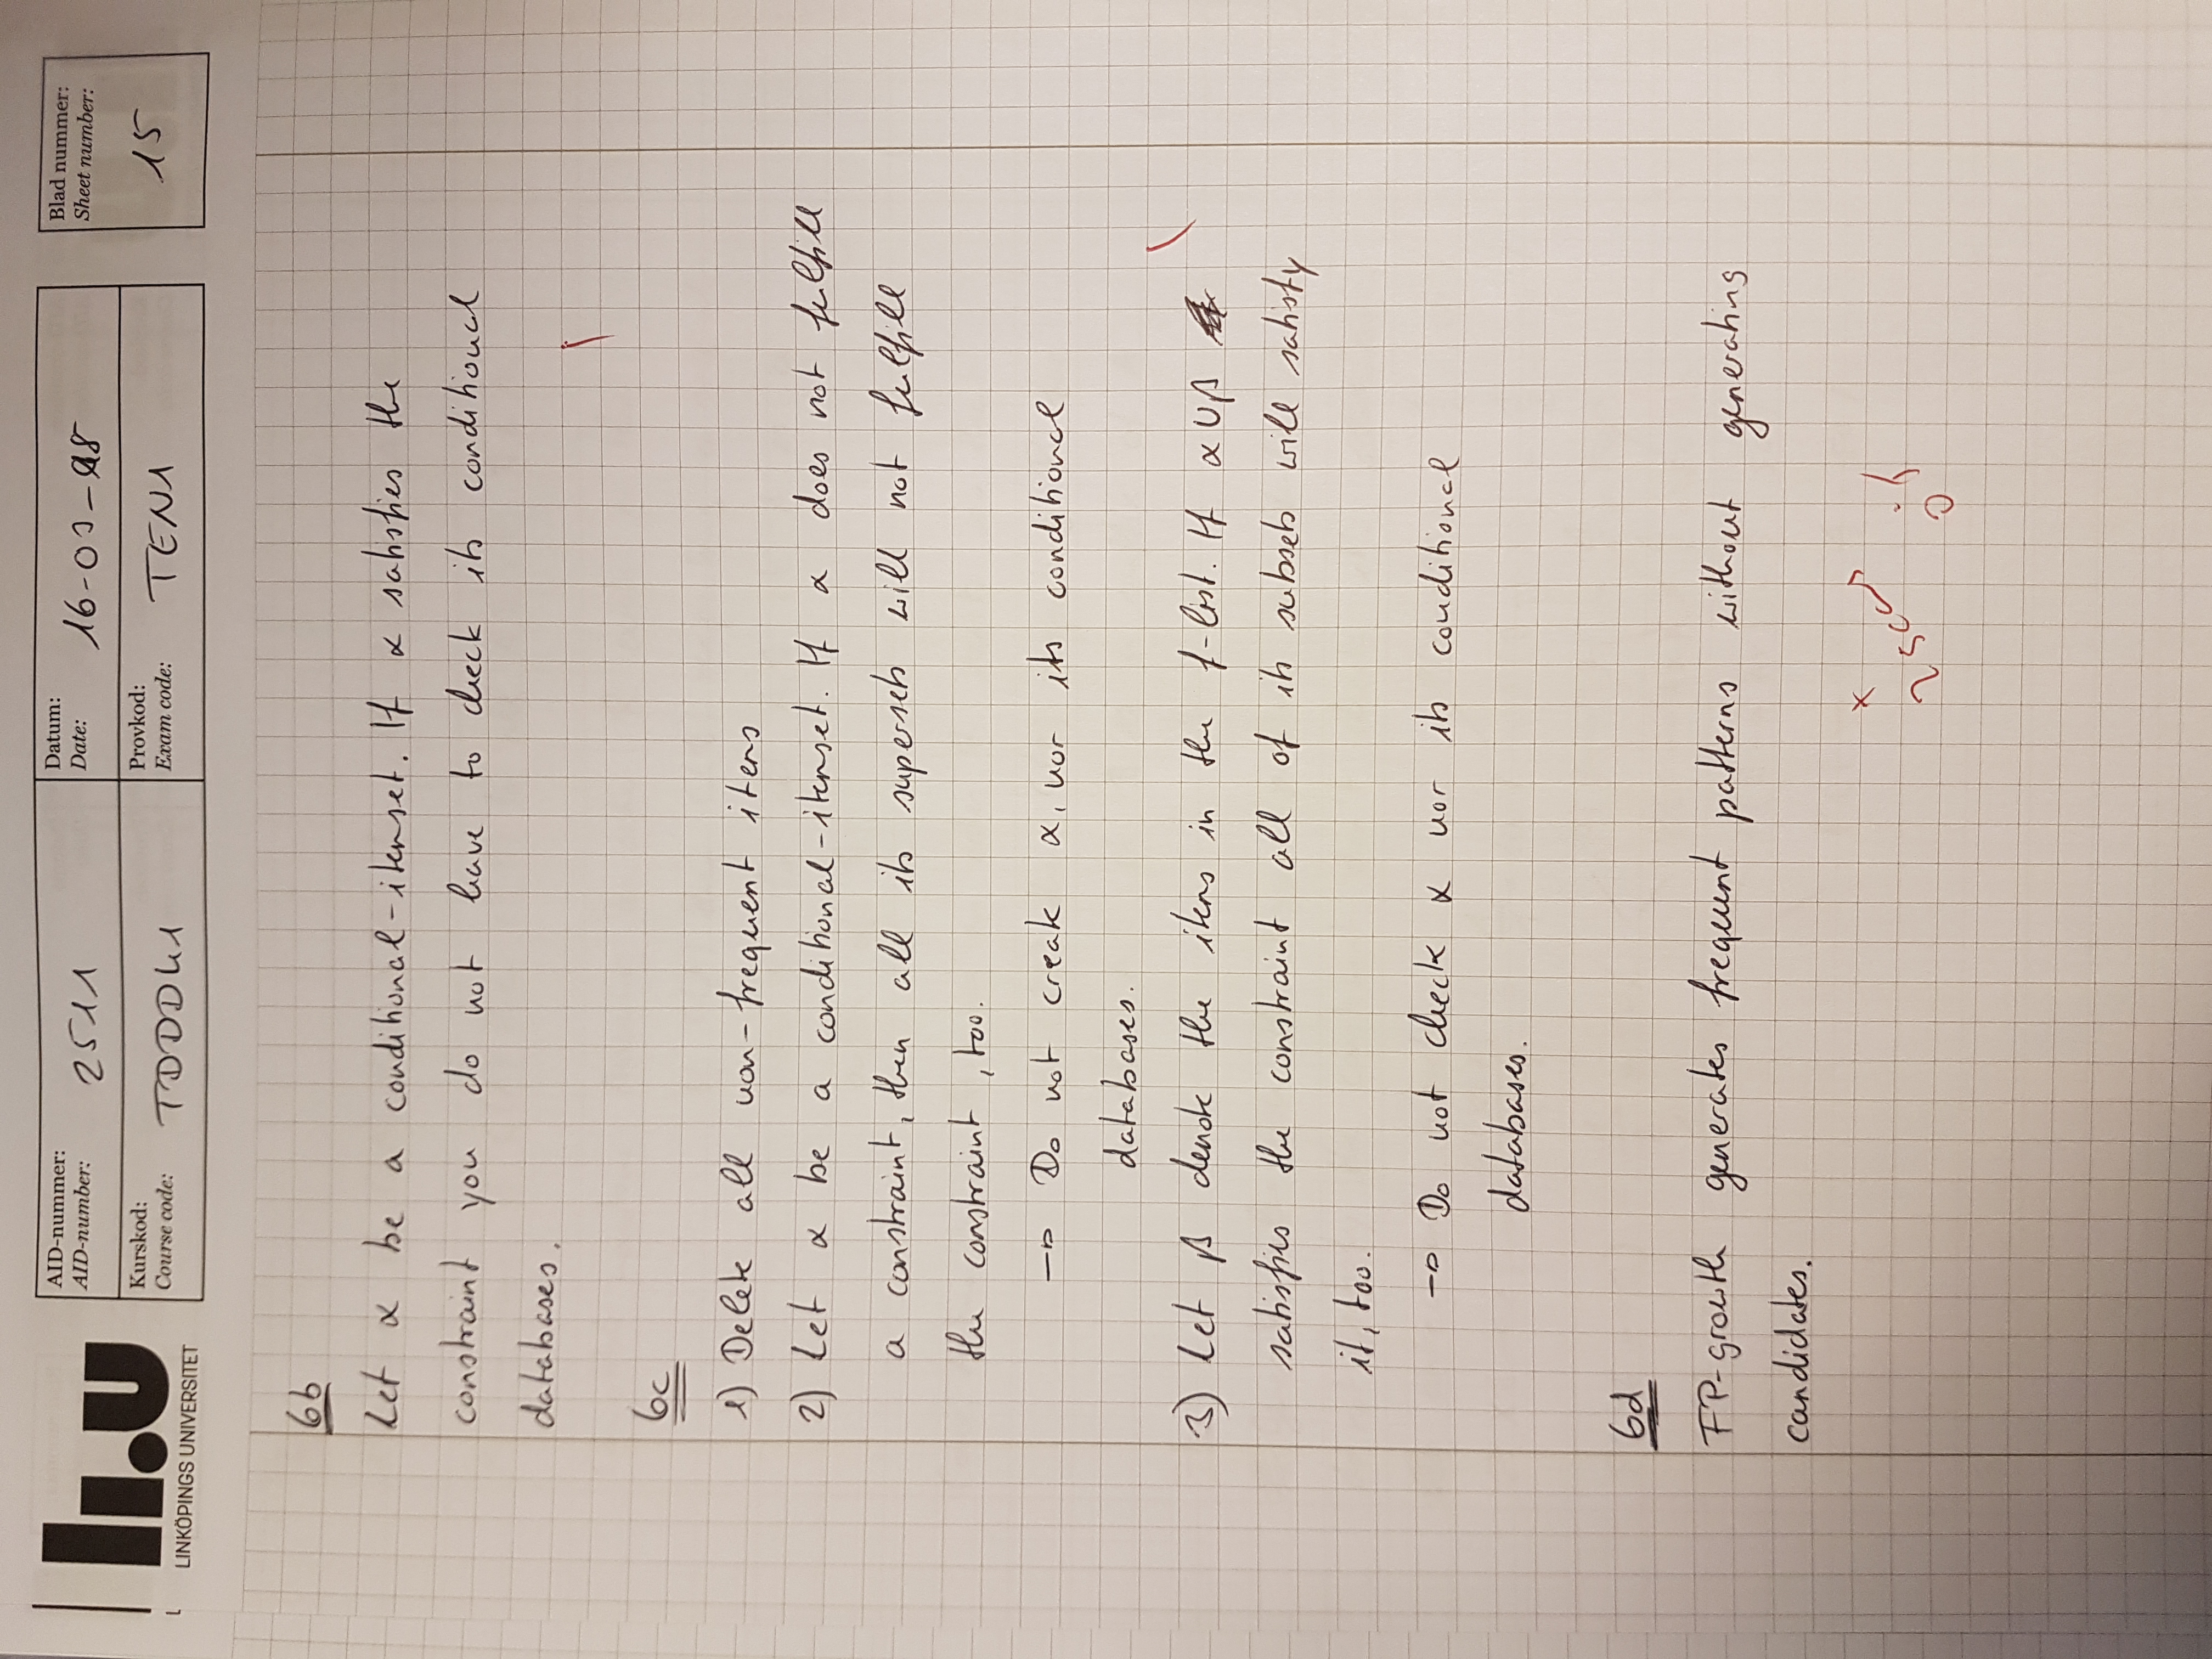 li.u
LINKÖPINGS UNIVERSITET
AID-nummer:
AID-number: 2511
Datum:
Date: 16-03-18
Kurskod:
Course code: TDDD41
Provkod:
Exam code: TEN1
Blad nummer:
Sheet number:
15
6b
Let α be a conditional-itemset. If α satisfies the
constraint you do not have to check its conditional
databases.
6c
1) Delete all non-frequent items
2) Let α be a conditional-itemset. If α does not fulfill
a constraint, then all its supersets will not fulfill
the constraint, too.
→ Do not create α, nor its conditional
databases.
3) Let β denote the items in the f-list. If α ∪ β
satisfies the constraint all of its subsets will satisfy
it, too.
→ Do not check α nor its conditional
databases.
6d
FP-growth generates frequent patterns without generating
candidates.
+
2 scans
0.5